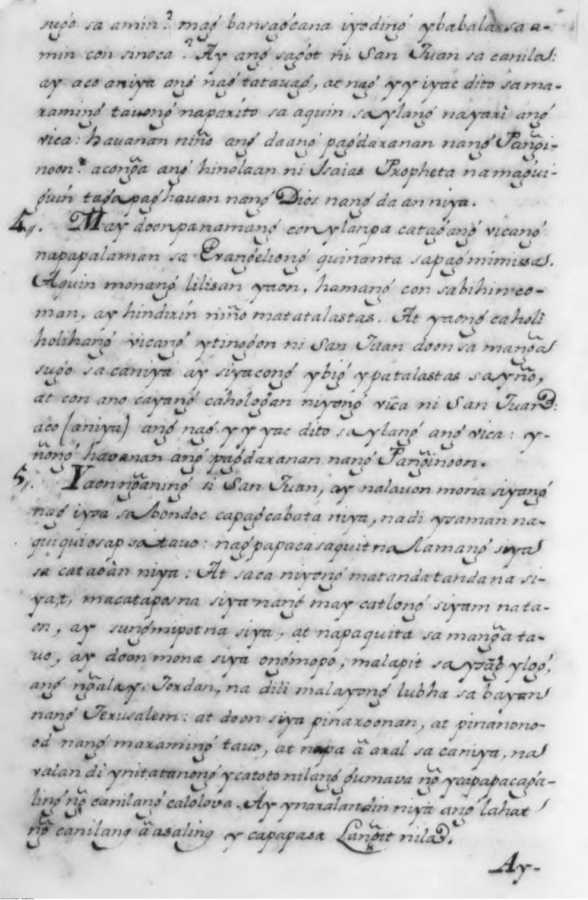 sugo sa amin? mag bansagcana iyoding ybabalar sa a-
min con sinoca? Ay ang sagot ni San Juan sa canila:
ay aco aniya ang nag tatauag, at nag yyiyac dito sa ma-
raming tauong naparito sa aquin sa ylang nayari ang
vica: hauanan niño ang daang pagdaranan nang Pangi-
noon: aconga ang hinolaan ni Isaias Propheta na magui-
guin taga paghauan nang Dios nang daan niya.
4. May doon pa namang con ylanpa catagang vicang
napapalaman sa Evangeliong quinanta sa pag mimissa.
Aquin monang lilisan yaon, hamang con sabihin co-
man, ay hindi rin niño matatalastas. At yaong caholi
holihang vicang ytingon ni San Juan doon sa manga
sugo sa caniya ay siyacong ybig ypatalastas sa yño,
at con ano cayang cahologan niyong vica ni San Juan:
aco (aniya) ang nag yyyac dito sa ylang ang vica: y-
nong hauanan ang pagdaranan nang Panginoon.
5. Yaon nganing si San Juan, ay nalauon mona siyang
nag iysa sa bondoc capag cabata niya, na di ysaman na-
quiquiosap sa tauo: nag papacasaquit na lamang siya
sa cataoan niya: At saca niyong matanda tanda na si-
yat, macatapos na siya nang may catlong siyam na ta-
on, ay sungmipot na siya, at napaquita sa manga ta-
uo, ay doon mona siya ongmopo, malapit sa ysang ylog,
ang ngalay, Jordan, na dili malayong lubha sa bayan
nang Jerusalem: at doon siya pinaroonan, at pinanono-
od nang maraming tauo, at napa a aral sa caniya, na
valan di ynitatanong ycatoto nilang gumava ng ycapapacaga-
ling ng canilang caloloua. Ay ynaralan din niya ang lahat
ng canilang a asaling y capapasa Langit nila.
Ay-